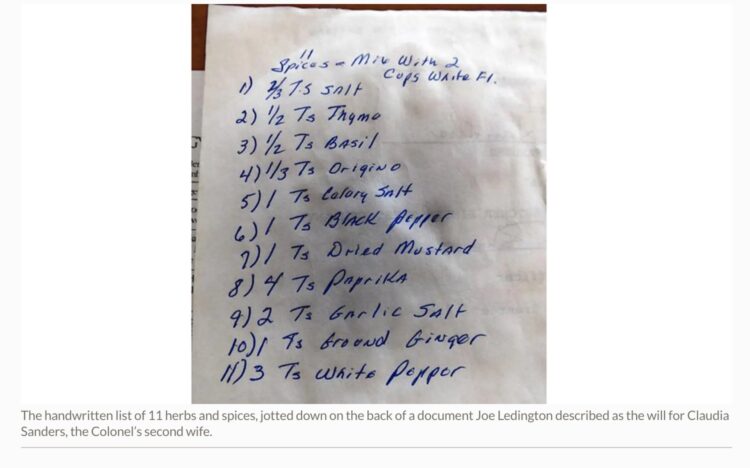 11
Spices - Mix With 2
Cups White Fl.
1) 2/3 Ts Salt
2) 1/2 Ts Thyme
3) 1/2 Ts Basil
4) 1/3 Ts Origino
5) 1 Ts Celary Salt
6) 1 Ts Black Pepper
7) 1 Ts Dried Mustard
8) 4 Ts Paprika
9) 2 Ts Garlic Salt
10) 1 Ts Ground Ginger
11) 3 Ts White Pepper
The handwritten list of 11 herbs and spices, jotted down on the back of a document Joe Ledington described as the will for Claudia
Sanders, the Colonel's second wife.